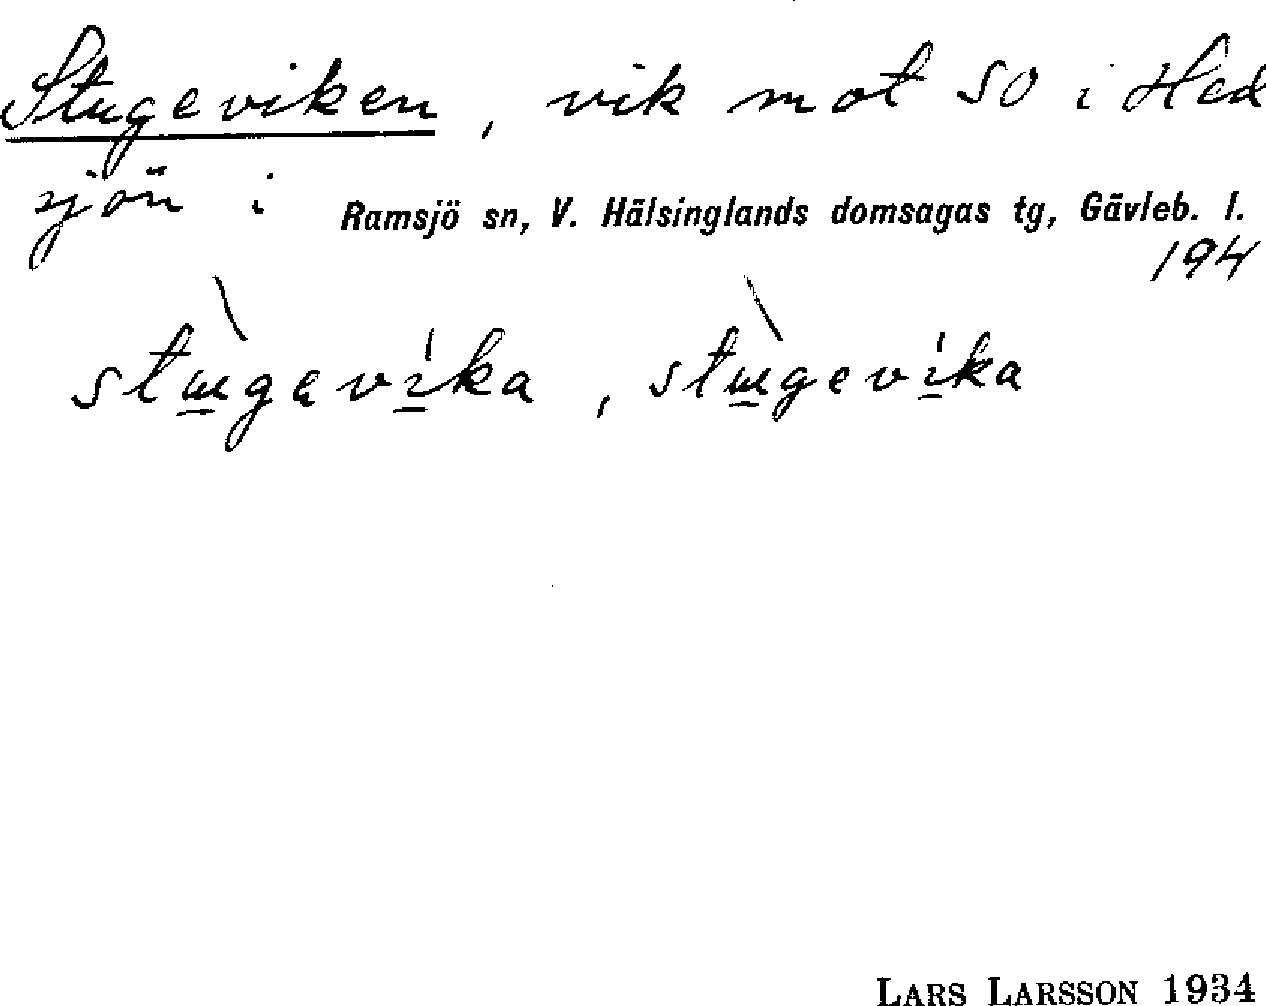 Stugeviken, vik mot SO i Hed
sjön i Ramsjö sn, V. Hälsinglands domsagas tg, Gävleb. l.
194
Lars Larsson 1934